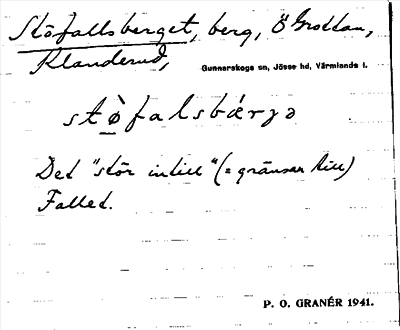 Stöfallsberget, berg, Ö Grottan,
Klanderud,
Gunnarskogs sn, Jösse hd, Värmlands l.
stø̀falsbærgə
Det "stör intill" (= gränsar till)
Fallet.
P. O. GRANÉR 1941.